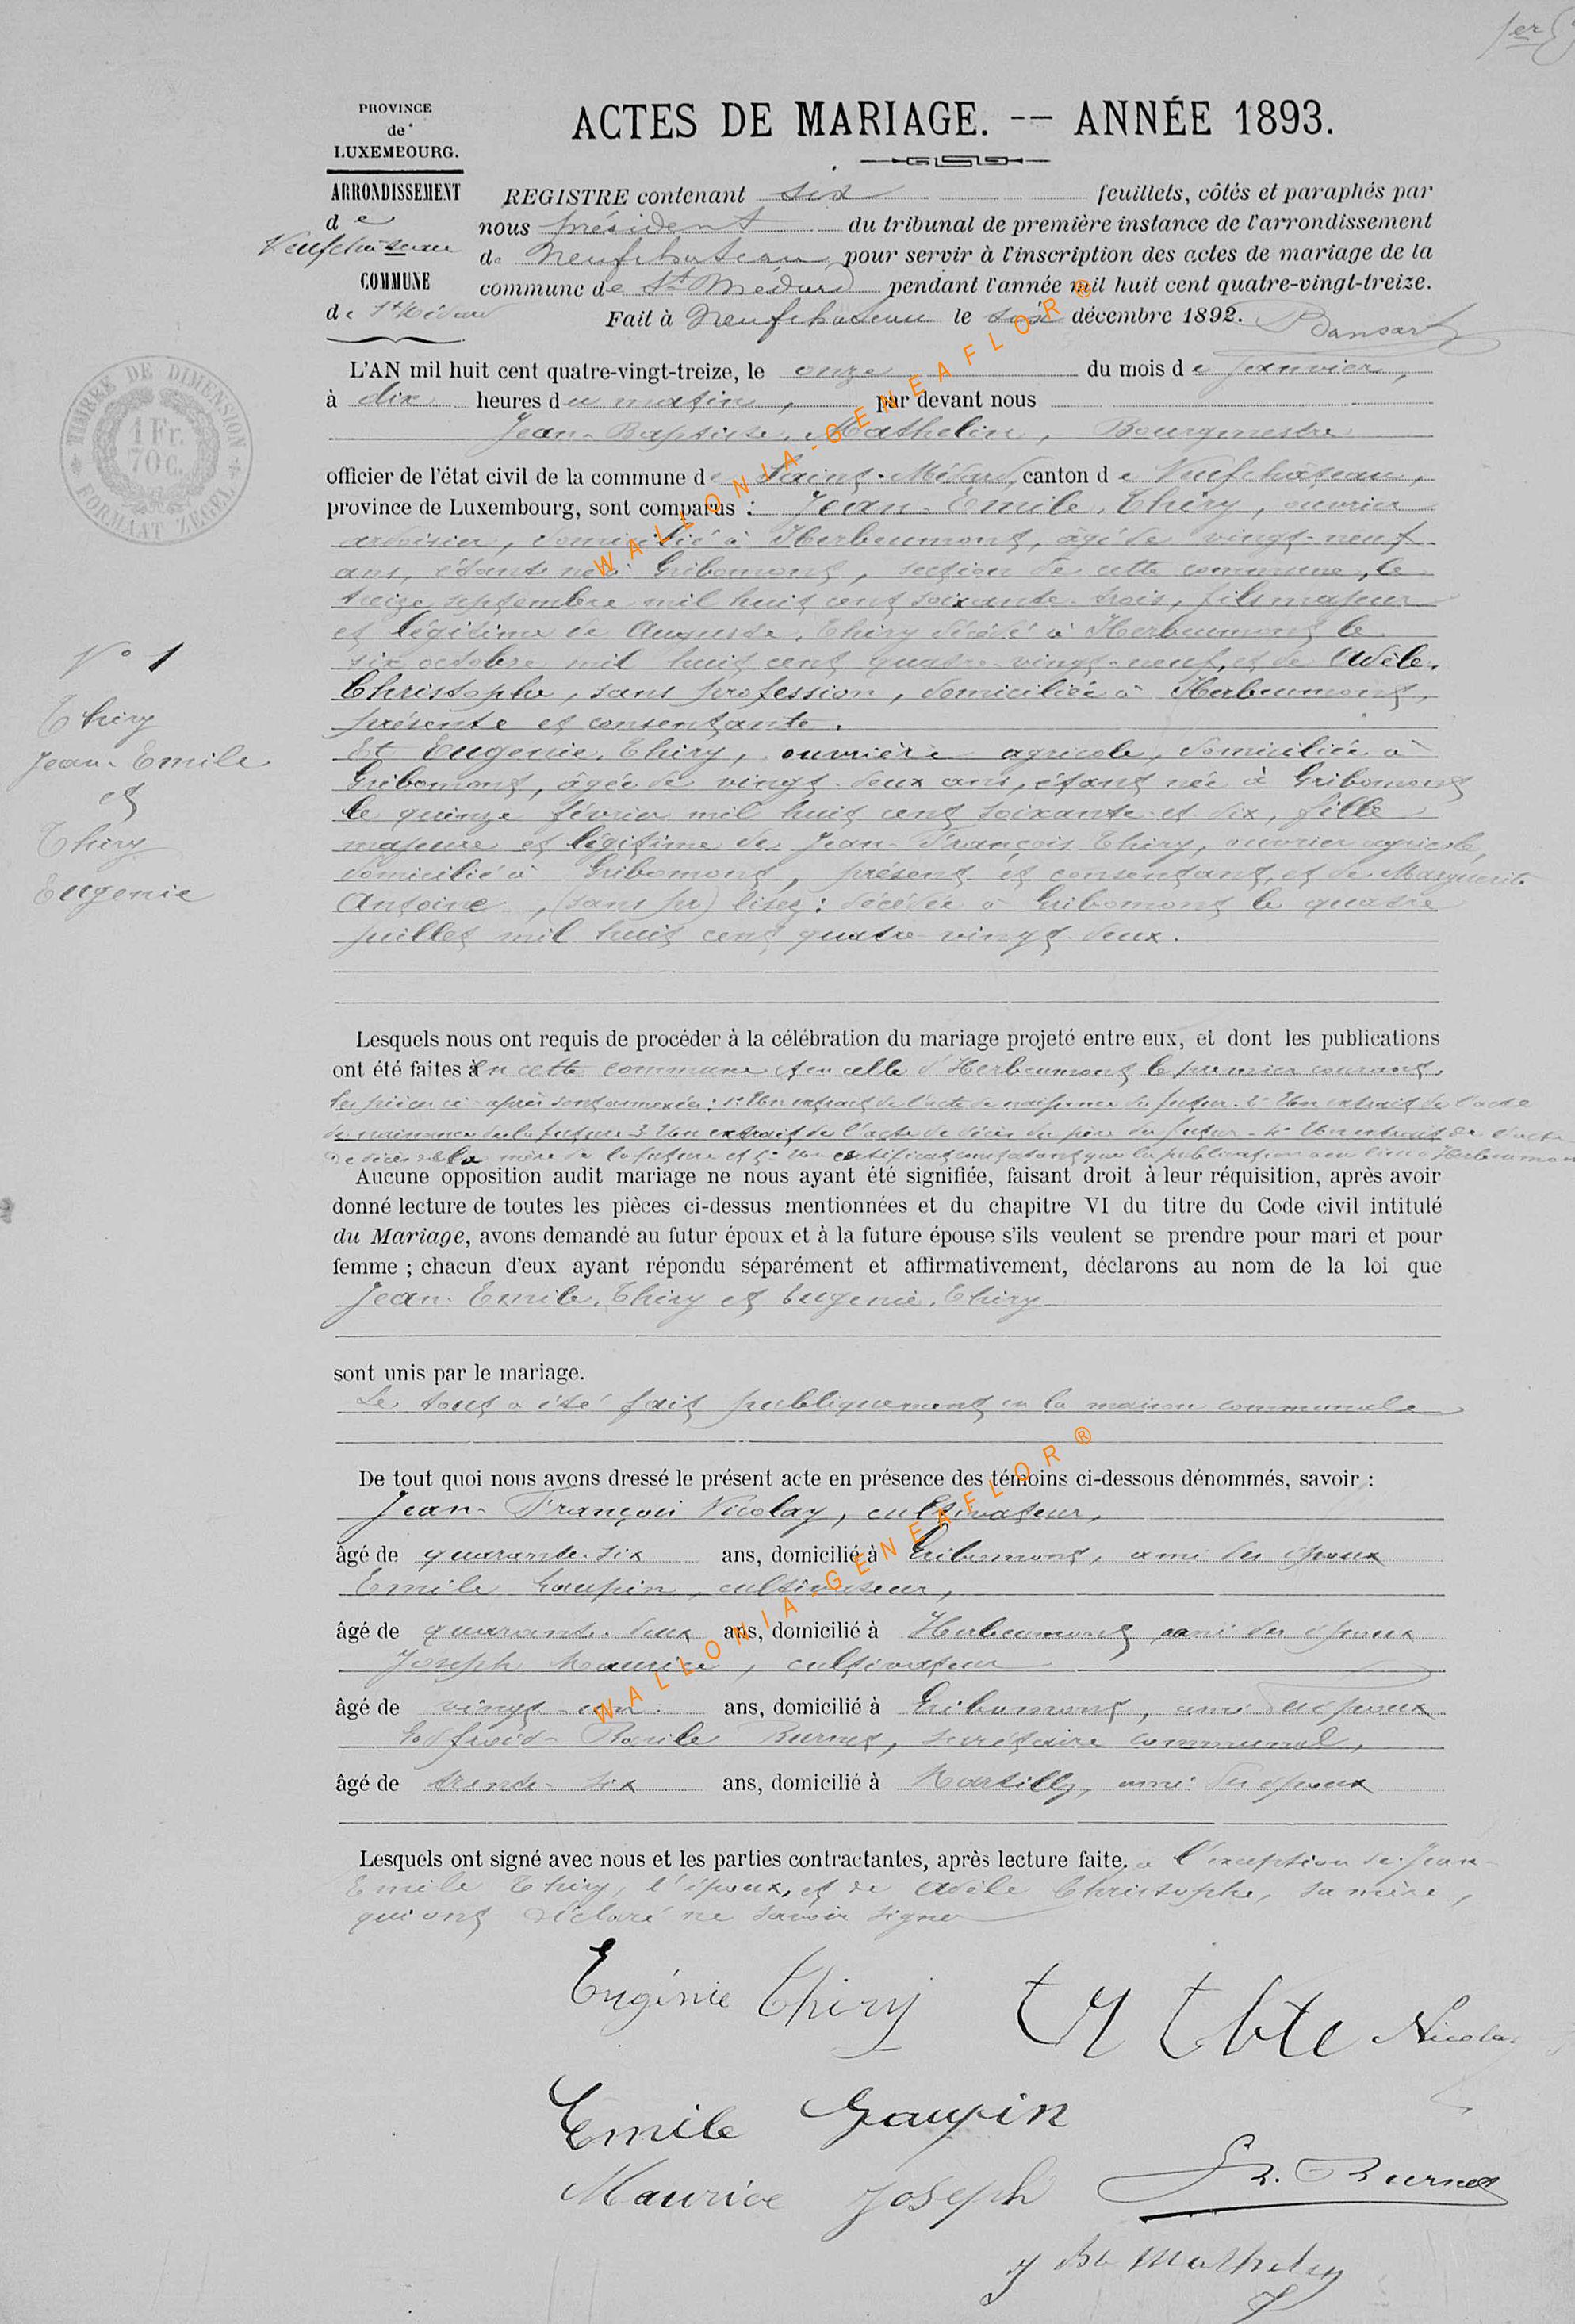 1er
PROVINCE
de
LUXEMBOURG.
ARRONDISSEMENT
de
Neufchâteau
COMMUNE
de St Médard
ACTES DE MARIAGE. -- ANNÉE 1893.
REGISTRE contenant six feuillets, côtés et paraphés par
nous président du tribunal de première instance de l'arrondissement
de Neufchateau pour servir à l'inscription des actes de mariage de la
commune de St Médard pendant l'année mil huit cent quatre-vingt-treize.
Fait à Neufchateau le six décembre 1892.
TIMBRE DE DIMENSION
1 Fr.
70 C.
FORMAAT ZEGEL
L'AN mil huit cent quatre-vingt-treize, le onze du mois de Janvier,
à dix heures du matin, par devant nous
Jean-Baptiste Mathelin, Bourgmestre
officier de l'état civil de la commune de Saint-Médard, canton de Neufchâteau,
province de Luxembourg, sont comparus : Jean-Emile Thiry, ouvrier
ardoisier, domicilié à Herbeumont, âgé de vingt-neuf
ans, étant né à Gribomont, section de cette commune, le
treize septembre mil huit cent soixante-trois, fils majeur
et légitime de Auguste Thiry décédé à Herbeumont le
six octobre mil huit cent quatre-vingt-neuf, et de Adèle
Christophe, sans profession, domiciliée à Herbeumont,
présente et consentante.
Et Eugenie Thiry, ouvrière agricole, domiciliée à
Gribomont, âgée de vingt-deux ans, étant née à Gribomont
le quinze février mil huit cent soixante et dix, fille
majeure et légitime de Jean-François Thiry, ouvrier agricole,
domicilié à Gribomont, présent et consentant, et de Marguerite
Antoine, (sans pr) lisez : décédée à Gribomont le quatre
juillet mil huit cent quatre-vingt-deux.
N° 1
Thiry
Jean-Emile
et
Thiry
Eugenie
Lesquels nous ont requis de procéder à la célébration du mariage projeté entre eux, et dont les publications
ont été faites en cette commune et en celle d'Herbeumont le premier courant.
Les pièces ci-après sont annexées : 1° Un extrait de l'acte de naissance du futur. 2° Un extrait de l'acte
de naissance de la future 3° Un extrait de l'acte de décès du père du futur - 4° Un extrait de l'acte
de décès de la mère de la future et 5° Un certificat constatant que la publication a eu lieu à Herbeumont
Aucune opposition audit mariage ne nous ayant été signifiée, faisant droit à leur réquisition, après avoir
donné lecture de toutes les pièces ci-dessus mentionnées et du chapitre VI du titre du Code civil intitulé
du Mariage, avons demandé au futur époux et à la future épouse s'ils veulent se prendre pour mari et pour
femme ; chacun d'eux ayant répondu séparément et affirmativement, déclarons au nom de la loi que
Jean-Emile Thiry et Eugenie Thiry
sont unis par le mariage.
Le tout a été fait publiquement en la maison communale
De tout quoi nous avons dressé le présent acte en présence des témoins ci-dessous dénommés, savoir :
Jean-François Nicolay, cultivateur,
âgé de quarante-six ans, domicilié à Gribomont, ami des époux
Emile Goupin, cultivateur,
âgé de quarante-deux ans, domicilié à Herbeumont, ami des époux
Joseph Maurice, cultivateur
âgé de vingt-un ans, domicilié à Gribomont, ami des époux
Burnet, secrétaire communal,
âgé de trente-six ans, domicilié à Martilly, ami des époux
Lesquels ont signé avec nous et les parties contractantes, après lecture faite, à l'exception de Jean-
Emile Thiry, l'époux, et de Adèle Christophe, sa mère,
qui ont déclaré ne savoir signer
Eugénie Thiry Nicolay
Emile Goupin
Maurice Joseph Burnet
J Bte Mathelin
WALLONIA-GENEAFLOR ®
WALLONIA-GENEAFLOR ®